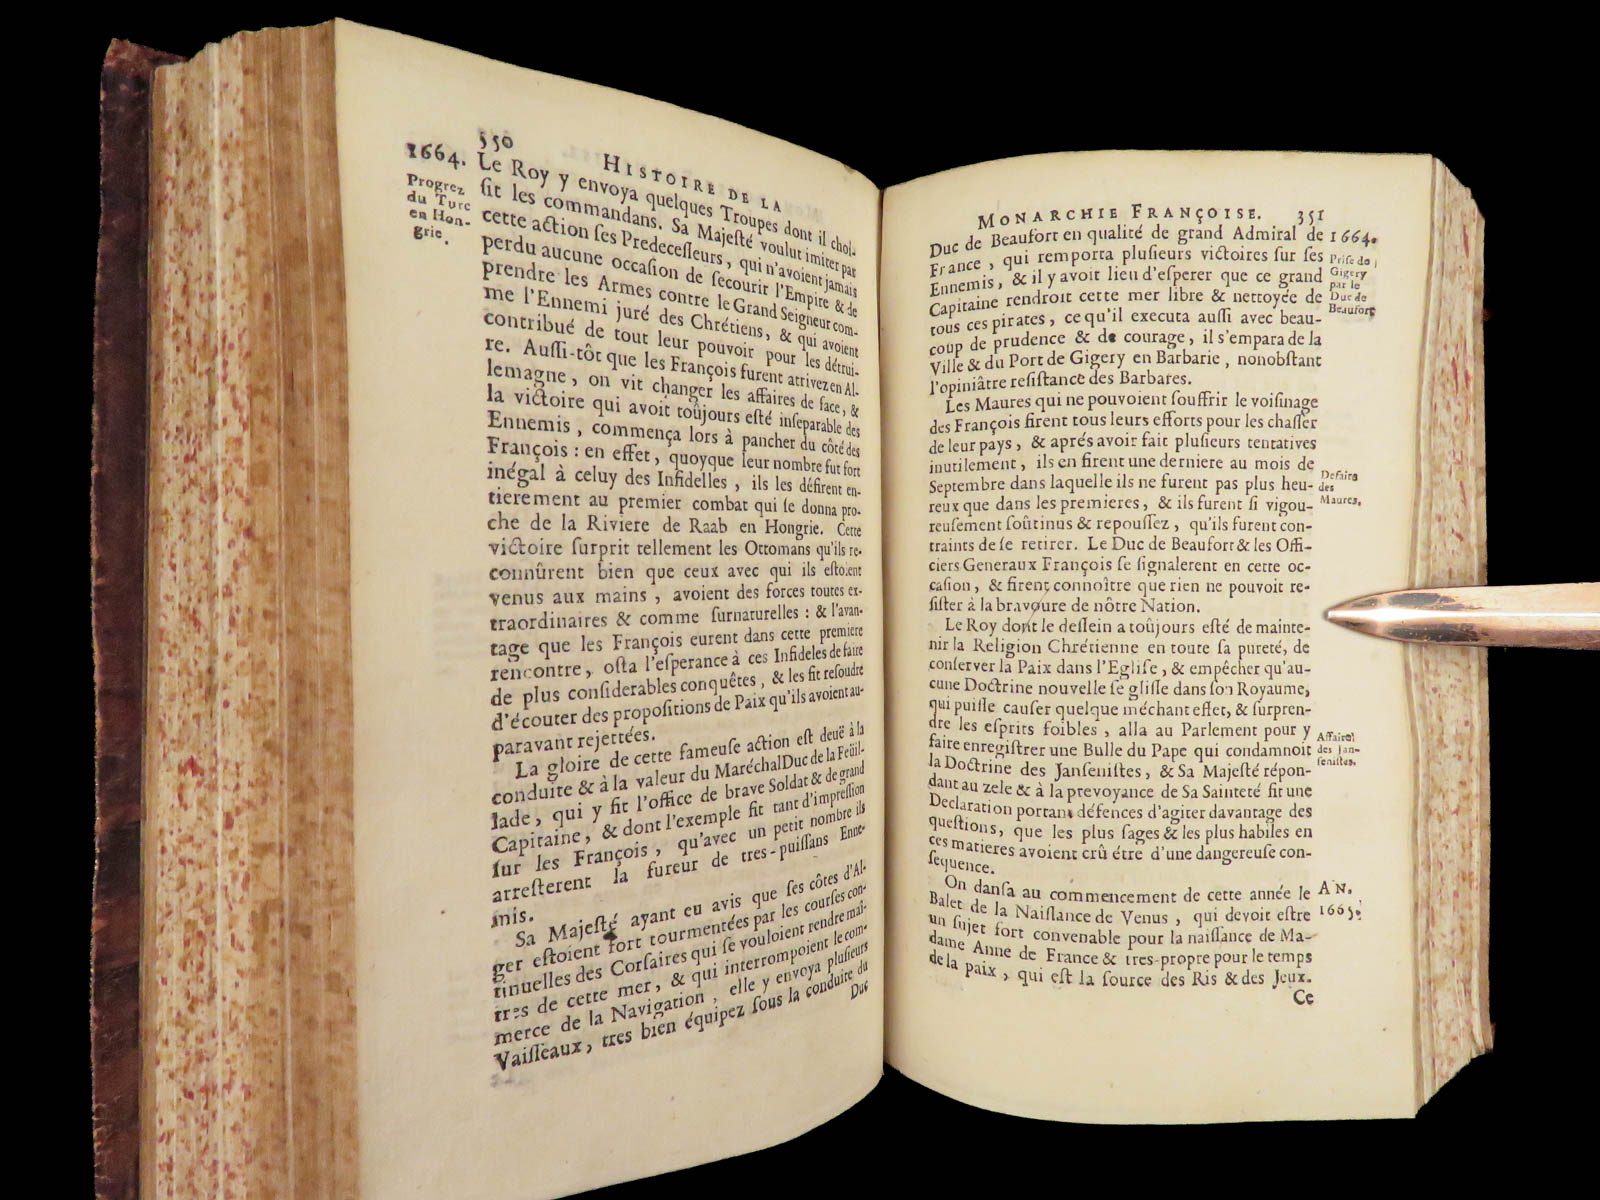 350
HISTOIRE DE LA
1664.
Progrez
du Turc
en Hon-
grie.
Le Roy y envoya quelques Troupes dont il choi-
ſit les commandans. Sa Majeſté voulut imiter par
cette action ſes Predeceſſeurs, qui n'avoient jamais
perdu aucune occaſion de ſecourir l'Empire & de
prendre les Armes contre le Grand Seigneur com-
me l'Ennemi juré des Chrétiens, & qui avoient
contribué de tout leur pouvoir pour les détrui-
re. Auſſi-tôt que les François furent arrivez en Al-
lemagne, on vit changer les affaires de face, &
la victoire qui avoit toûjours eſté inſeparable des
Ennemis, commença lors à pancher du côté des
François : en effet, quoyque leur nombre fut fort
inégal à celuy des Infidelles, ils les défirent en-
tierement au premier combat qui ſe donna pro-
che de la Riviere de Raab en Hongrie. Cette
victoire ſurprit tellement les Ottomans qu'ils re-
connûrent bien que ceux avec qui ils eſtoient
venus aux mains, avoient des forces toutes ex-
traordinaires & comme ſurnaturelles : & l'avan-
tage que les François eurent dans cette premiere
rencontre, oſta l'eſperance à ces Infideles de faire
de plus conſiderables conquêtes, & les fit reſoudre
d'écouter des propoſitions de Paix qu'ils avoient au-
paravant rejettées.
La gloire de cette fameuſe action eſt deuë à la
conduite & à la valeur du Maréchal Duc de la Feüil-
lade, qui y fit l'office de brave Soldat & de grand
Capitaine, & dont l'exemple fit tant d'impreſſion
ſur les François, qu'avec un petit nombre ils
arreſterent la fureur de tres-puiſſans Enne-
mis.
Sa Majeſté ayant eu avis que ſes côtes d'Al-
ger eſtoient fort tourmentées par les courſes con-
tinuelles des Corſaires qui ſe vouloient rendre maî-
tres de cette mer, & qui interrompoient le com-
merce de la Navigation, elle y envoya pluſieurs
Vaiſſeaux, tres bien équipez ſous la conduite du
Duc
MONARCHIE FRANÇOISE. 351
Duc de Beaufort en qualité de grand Admiral de
France, qui remporta pluſieurs victoires ſur ſes
Ennemis, & il y avoit lieu d'eſperer que ce grand
Capitaine rendroit cette mer libre & nettoyée de
tous ces pirates, ce qu'il executa auſſi avec beau-
coup de prudence & de courage, il s'empara de la
Ville & du Port de Gigery en Barbarie, nonobſtant
l'opiniâtre reſiſtance des Barbares.
1664.
Priſe de
Gigery
par le
Duc de
Beaufort
Les Maures qui ne pouvoient ſouffrir le voiſinage
des François firent tous leurs efforts pour les chaſſer
de leur pays, & aprés avoir fait pluſieurs tentatives
inutilement, ils en firent une derniere au mois de
Septembre dans laquelle ils ne furent pas plus heu-
reux que dans les premieres, & ils furent ſi vigou-
reuſement ſoûtinus & repouſſez, qu'ils furent con-
traints de ſe retirer. Le Duc de Beaufort & les Offi-
ciers Generaux François ſe ſignalerent en cette oc-
caſion, & firent connoître que rien ne pouvoit re-
ſiſter à la bravoure de nôtre Nation.
Defaite
des
Maures.
Le Roy dont le deſſein a toûjours eſté de mainte-
nir la Religion Chrétienne en toute ſa pureté, de
conſerver la Paix dans l'Egliſe, & empêcher qu'au-
cune Doctrine nouvelle ſe gliſſe dans ſon Royaume,
qui puiſſe cauſer quelque méchant effet, & ſurpren-
dre les eſprits foibles, alla au Parlement pour y
faire enregiſtrer une Bulle du Pape qui condamnoit
la Doctrine des Janſeniſtes, & Sa Majeſté répon-
dant au zele & à la prevoyance de Sa Sainteté fit une
Declaration portant défences d'agiter davantage des
queſtions, que les plus ſages & les plus habiles en
ces matieres avoient crû étre d'une dangereuſe con-
ſequence.
Affaires
des Jan-
ſeniſtes.
On danſa au commencement de cette année le
Balet de la Naiſſance de Venus, qui devoit eſtre
un ſujet fort convenable pour la naiſſance de Ma-
dame Anne de France & tres-propre pour le temps
de la paix, qui eſt la ſource des Ris & des Jeux.
AN.
1665.
Ce